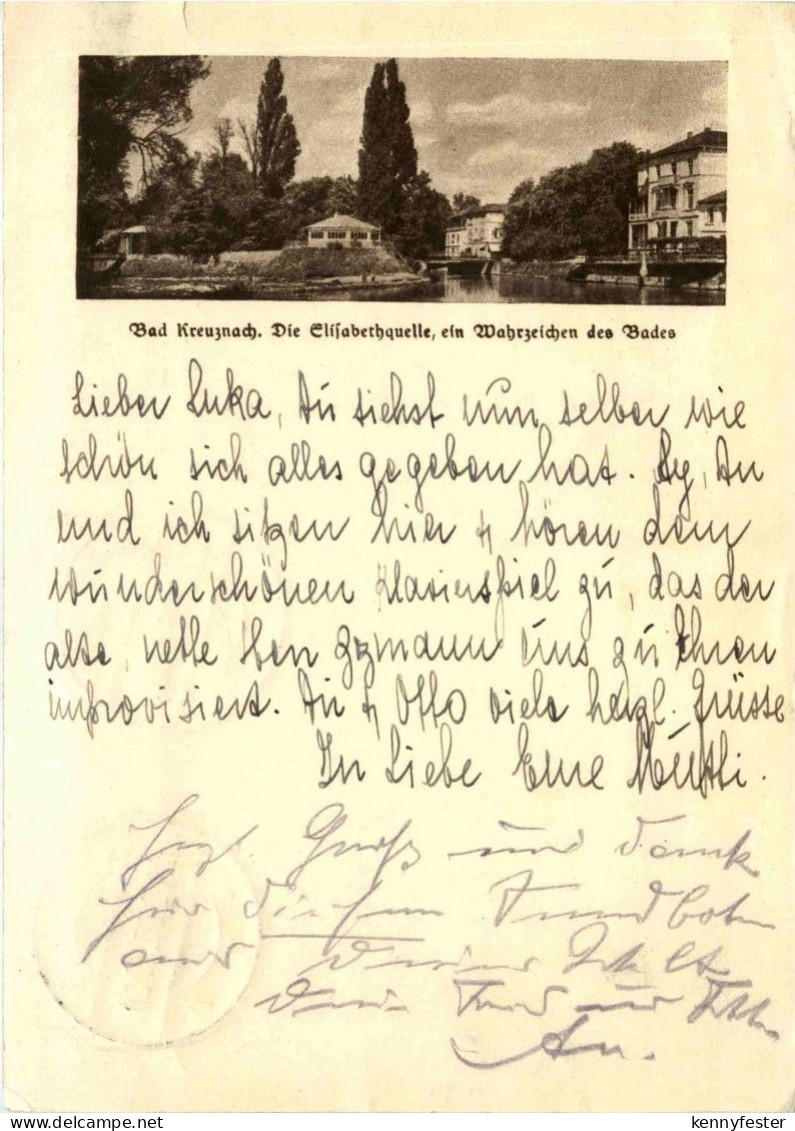 Bad Kreuznach. Die Elisabethquelle, ein Wahrzeichen des Bades
Lieber Luka, Du siehst nun selber wie
schön sich alles gegeben hat. Du
und ich sitzen hier & hören dem
wunderschönen Klavierspiel zu, das der
alte, nette Herr uns zu Ehren
improvisiert. Dir & Otto viele herzl. Grüsse
In Liebe Eure Mutti.
Herzl Gruß und Dank
für diesen
und Deiner
Dein und
kennyfester